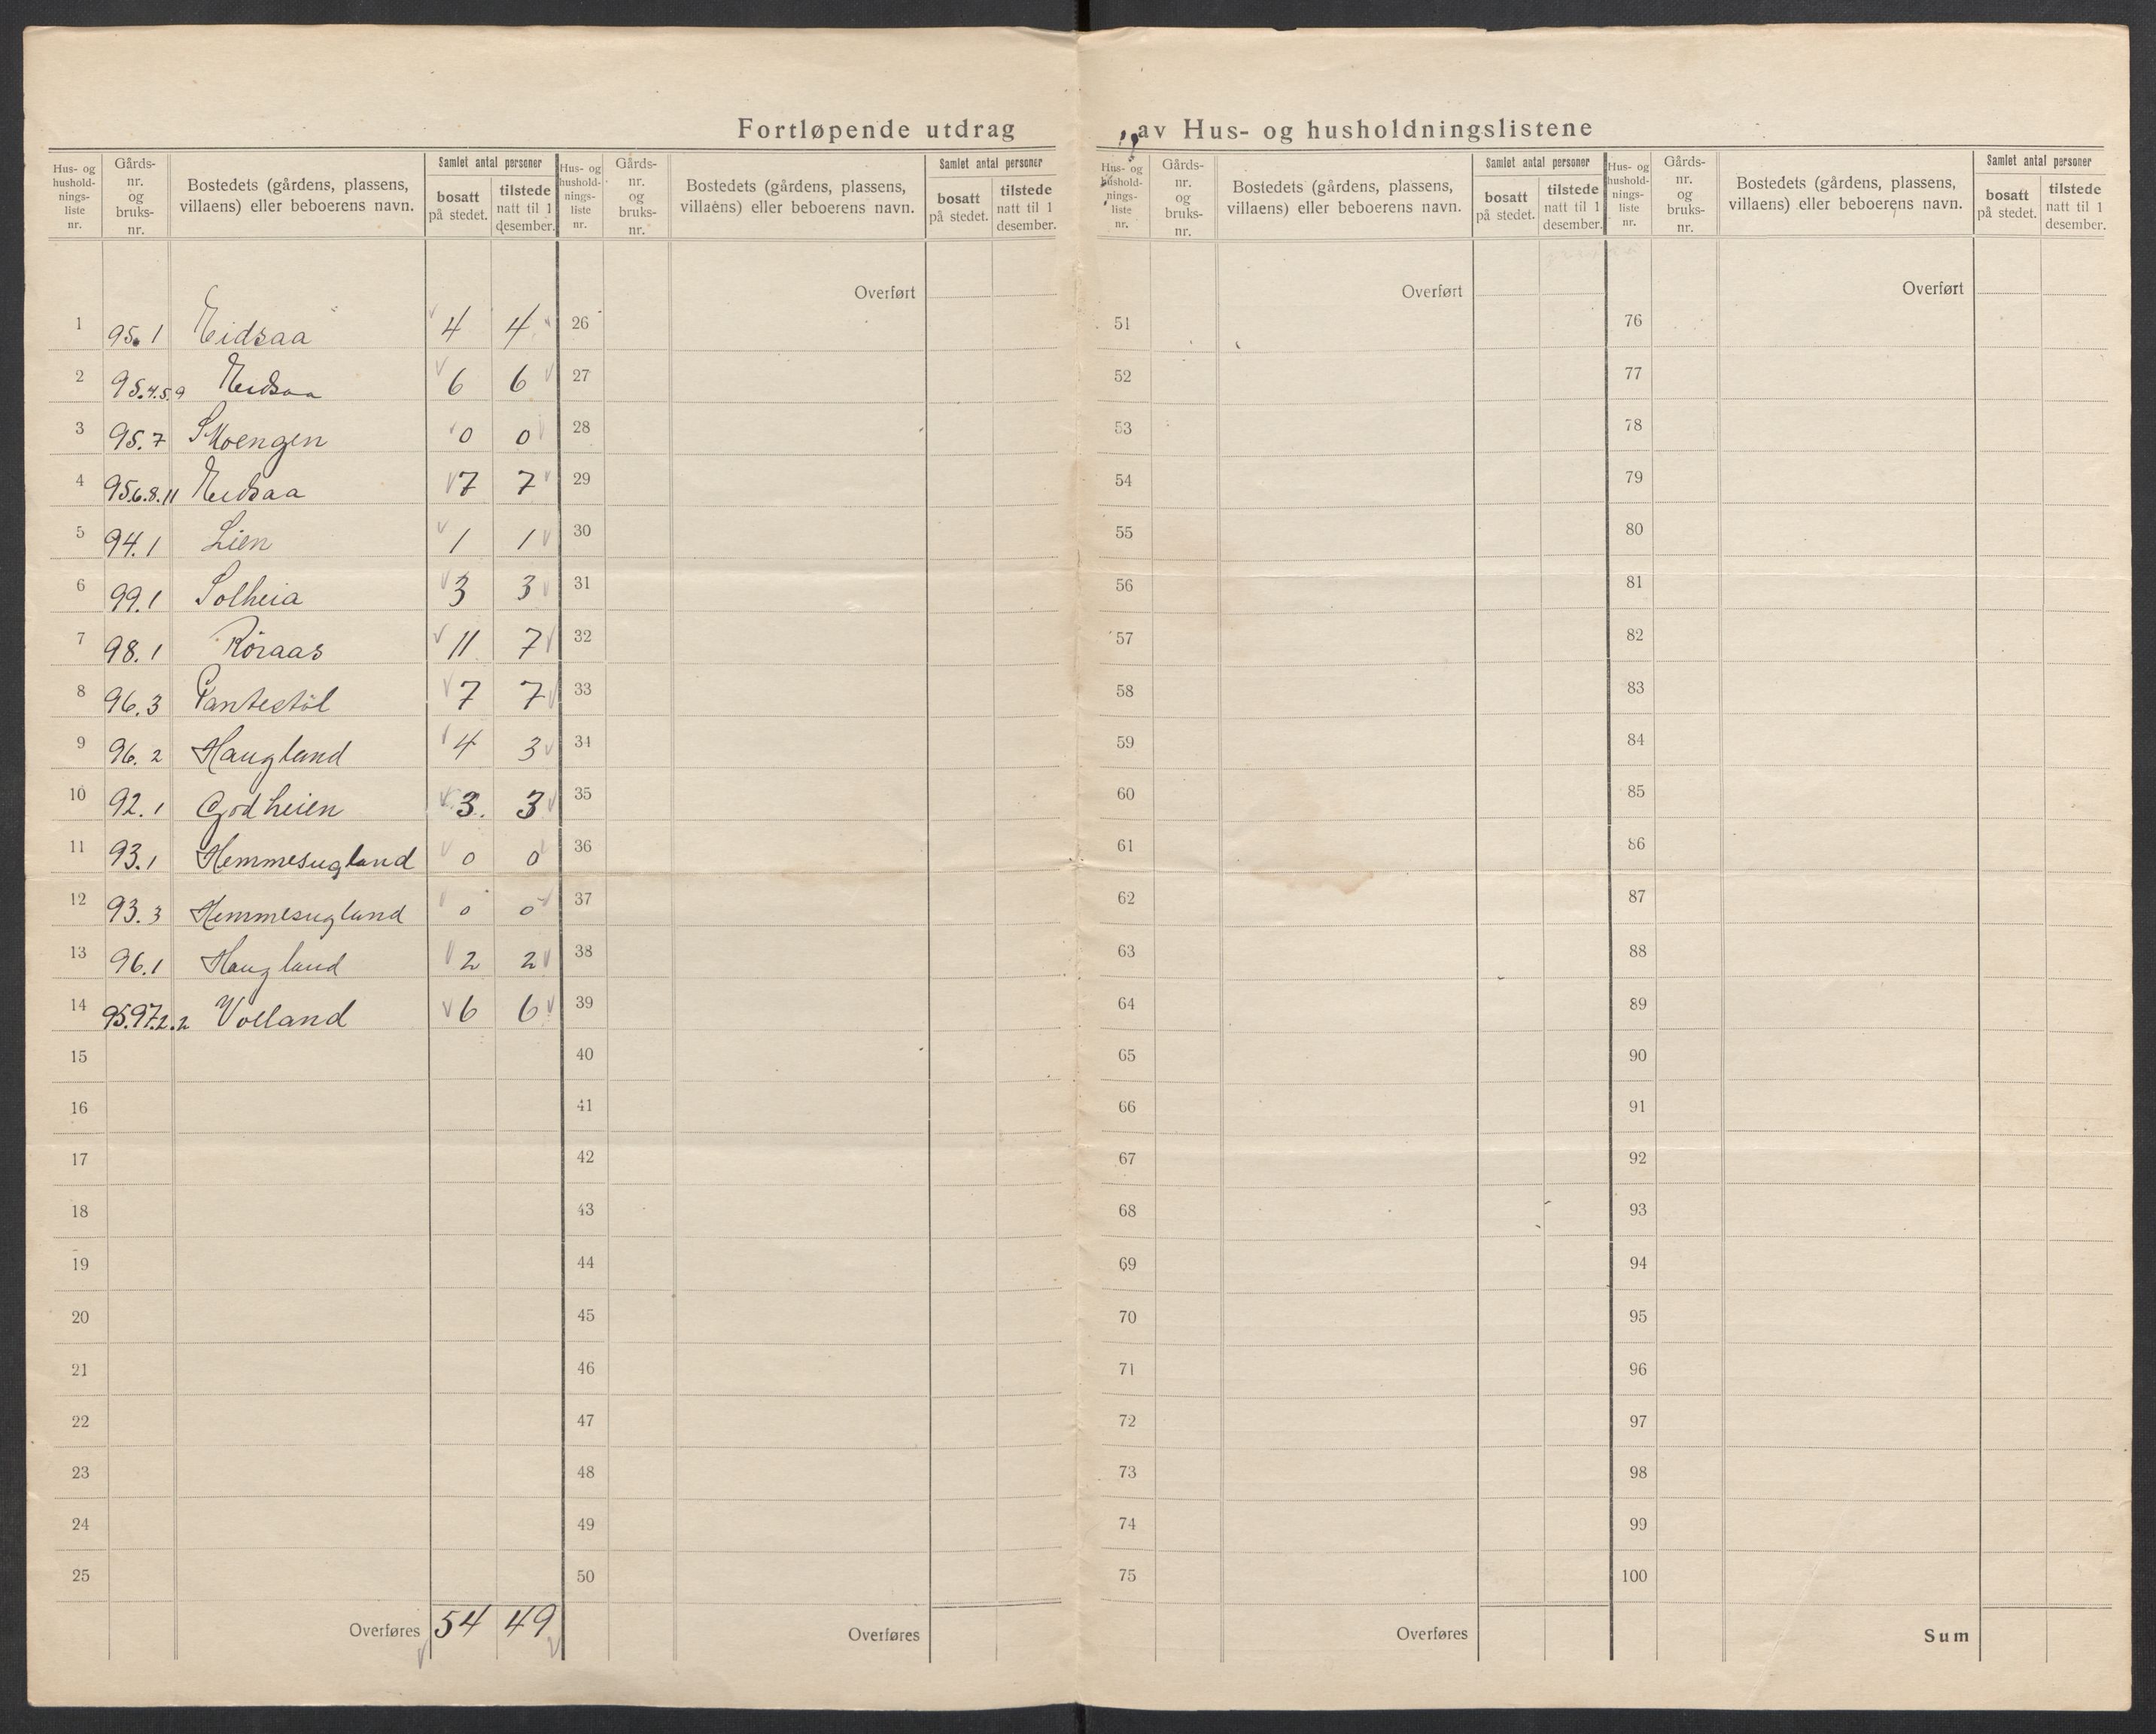 Fortløpende utdrag av Hus- og husholdningslistene
Hus- og hushold- nings- liste nr. | Gårds- nr. og bruks- nr. | Bostedets (gårdens, plassens, villaens) eller beboerens navn. | Samlet antal personer | bosatt på stedet. | tilstede natt til 1 desember.
Hus- og hushold- nings- liste nr. | Gårds- nr. og bruks- nr. | Bostedets (gårdens, plassens, villaens) eller beboerens navn. | Samlet antal personer | bosatt på stedet. | tilstede natt til 1 desember.
Hus- og hushold- nings- liste nr. | Gårds- nr. og bruks- nr. | Bostedets (gårdens, plassens, villaens) eller beboerens navn. | Samlet antal personer | bosatt på stedet. | tilstede natt til 1 desember.
Hus- og hushold- nings- liste nr. | Gårds- nr. og bruks- nr. | Bostedets (gårdens, plassens, villaens) eller beboerens navn. | Samlet antal personer | bosatt på stedet. | tilstede natt til 1 desember.
Overført Overført Overført
1 95.1 Eidsaa 4 4 26 51 76
2 95.4.5.9 Eidsaa 6 6 27 52 77
3 95.7 0 0 28 53 78
4 95.6.8.11 Eidsaa 7 7 29 54 79
5 94.1 Lien 1 1 30 55 80
6 99.1 Solheia 3 3 31 56 81
7 98.1 Røraas 11 7 32 57 82
8 96.3 Pantestøl 7 7 33 58 83
9 96.2 Haugland 4 3 34 59 84
10 92.1 Godheien 3. 3 35 60 85
11 93.1 Hemmesugland 0 0 36 61 86
12 93.3 Hemmesugland 0 0 37 62 87
13 96.1 Haugland 2 2 38 63 88
14 95.97.2.2 Voiland 6 6 39 64 89
15 40 65 90
16 41 66 91
17 42 67 92
18 43 68 93
19 44 69 94
20 45 70 95
21 46 71 96
22 47 72 97
23 48 73 98
24 49 74 99
25 50 75 100
Overføres 54 49 Overføres Overføres Sum